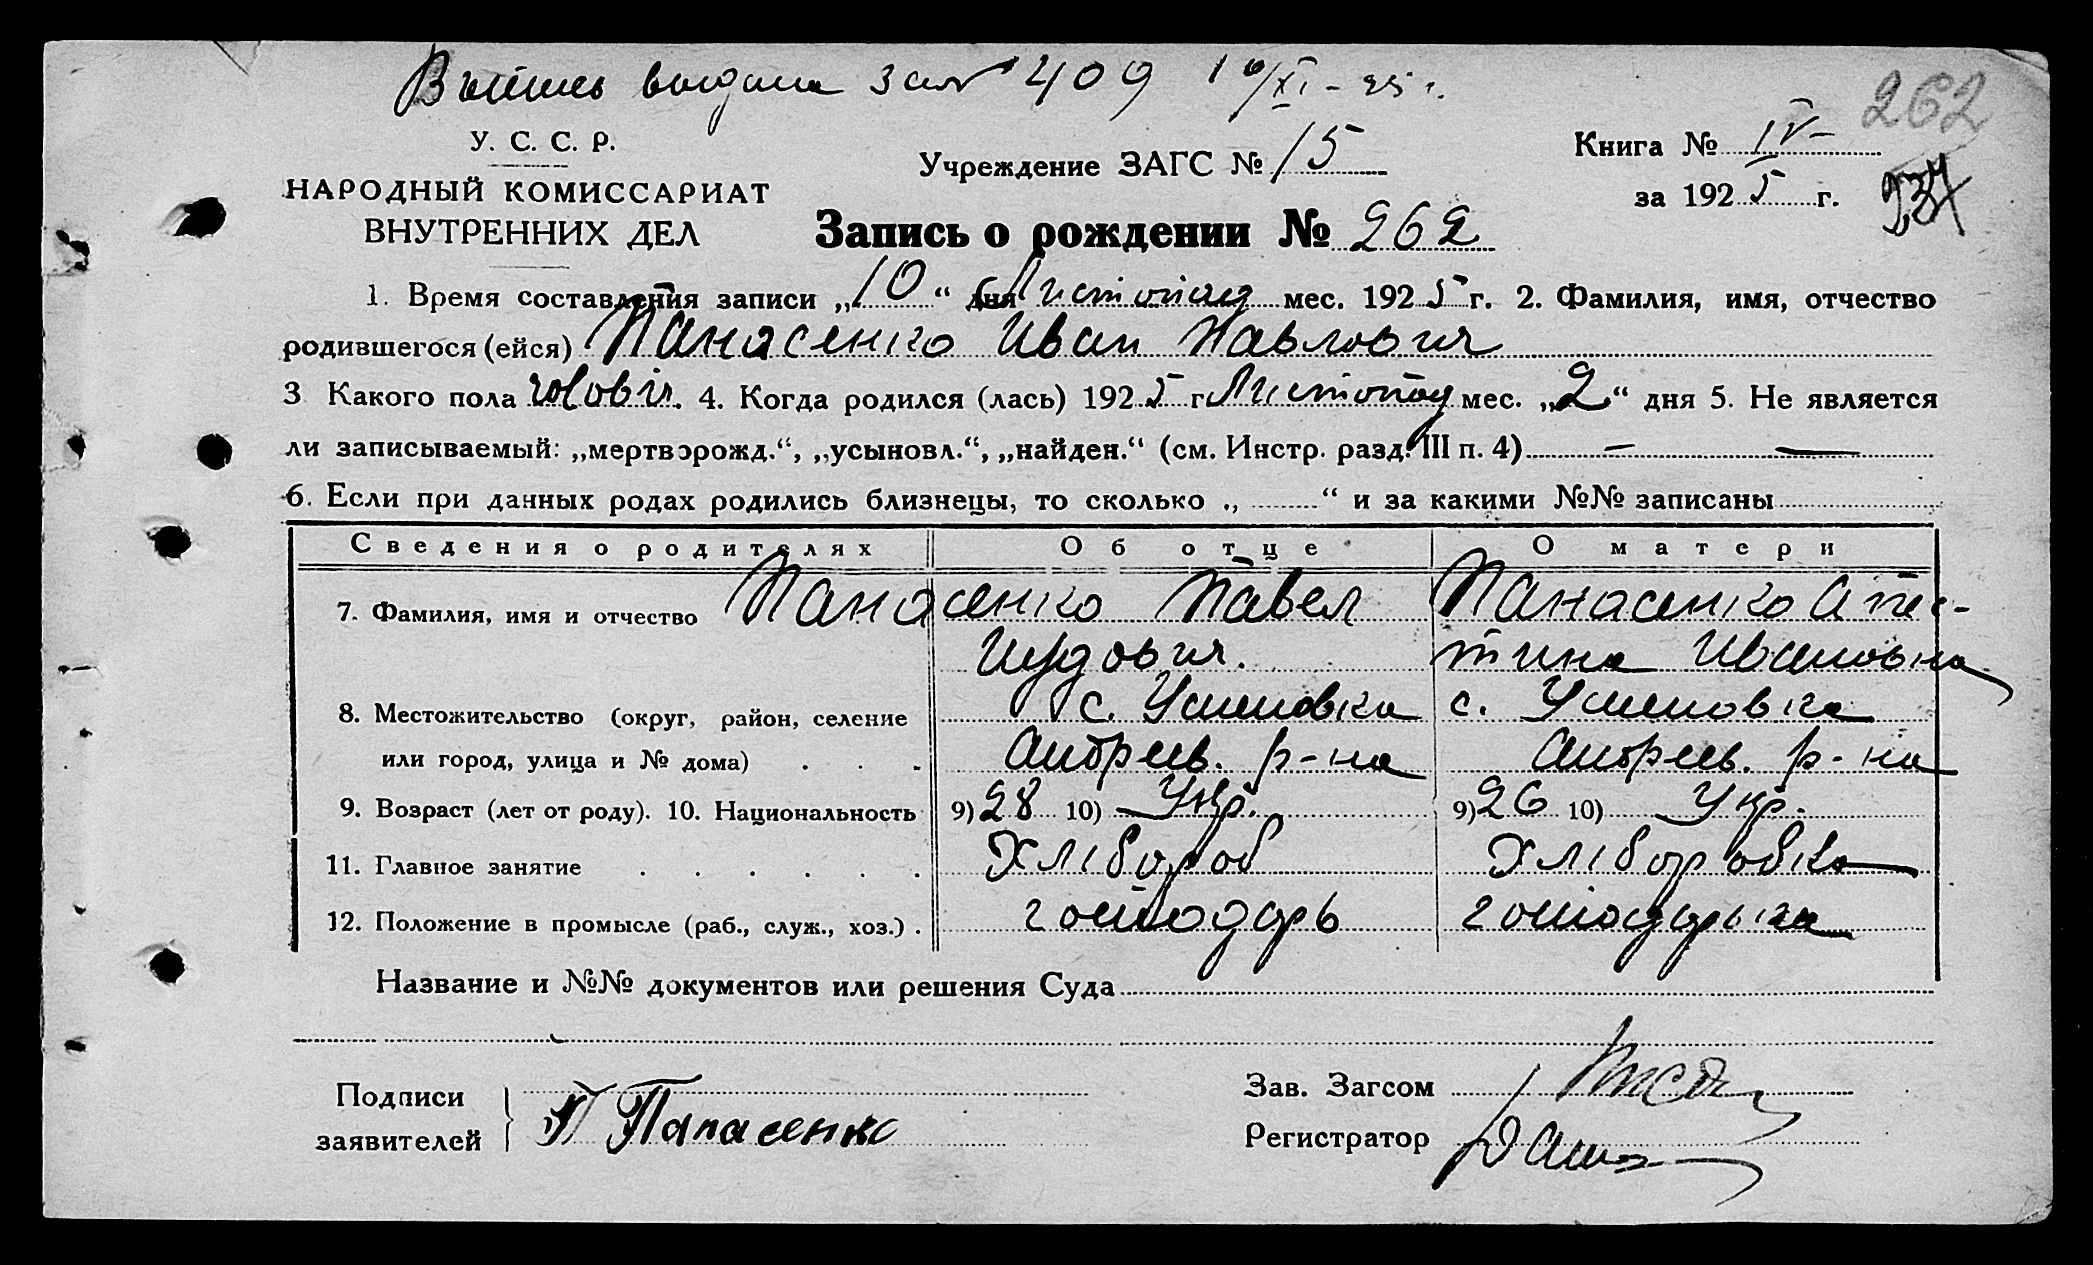 выдана за № 409 1 /XI - 25 г.
262
У. С. С. Р.
Учреждение ЗАГС № 15
Книга № IV
НАРОДНЫЙ КОМИССАРИАТ
за 1925 г.
234
ВНУТРЕННИХ ДЕЛ
Запись о рождении № 262
1. Время составления записи „10“ дня Листопад мес. 1925 г. 2. Фамилия, имя, отчество
родившегося (ейся) Панасенко Иван Павлович
3 Какого пола чоловіч. 4. Когда родился (лась) 1925 г Листопад мес. „2“ дня 5. Не является
ли записываемый: „мертворожд.“, „усыновл.“, „найден.“ (см. Инстр. разд. III п. 4) — —
6. Если при данных родах родились близнецы, то сколько „ “ и за какими №№ записаны
Сведения о родителях Об отце О матери
7. Фамилия, имя и отчество Панасенко Павел Панасенко
Ивановна
8. Местожительство (округ, район, селение с. Успеновка с. Успеновка
или город, улица и № дома) . . . Андреев. р-на Андреев. р-на
9. Возраст (лет от роду). 10. Национальность 9) 28 10) Укр. 9) 26 10) Укр.
11. Главное занятие . . . . . . Хлібороб Хліборобка
12. Положение в промысле (раб., служ., хоз.) . господарь господарька
Название и №№ документов или решения Суда
Подписи
заявителей
П Панасенко
Зав. Загсом
Регистратор